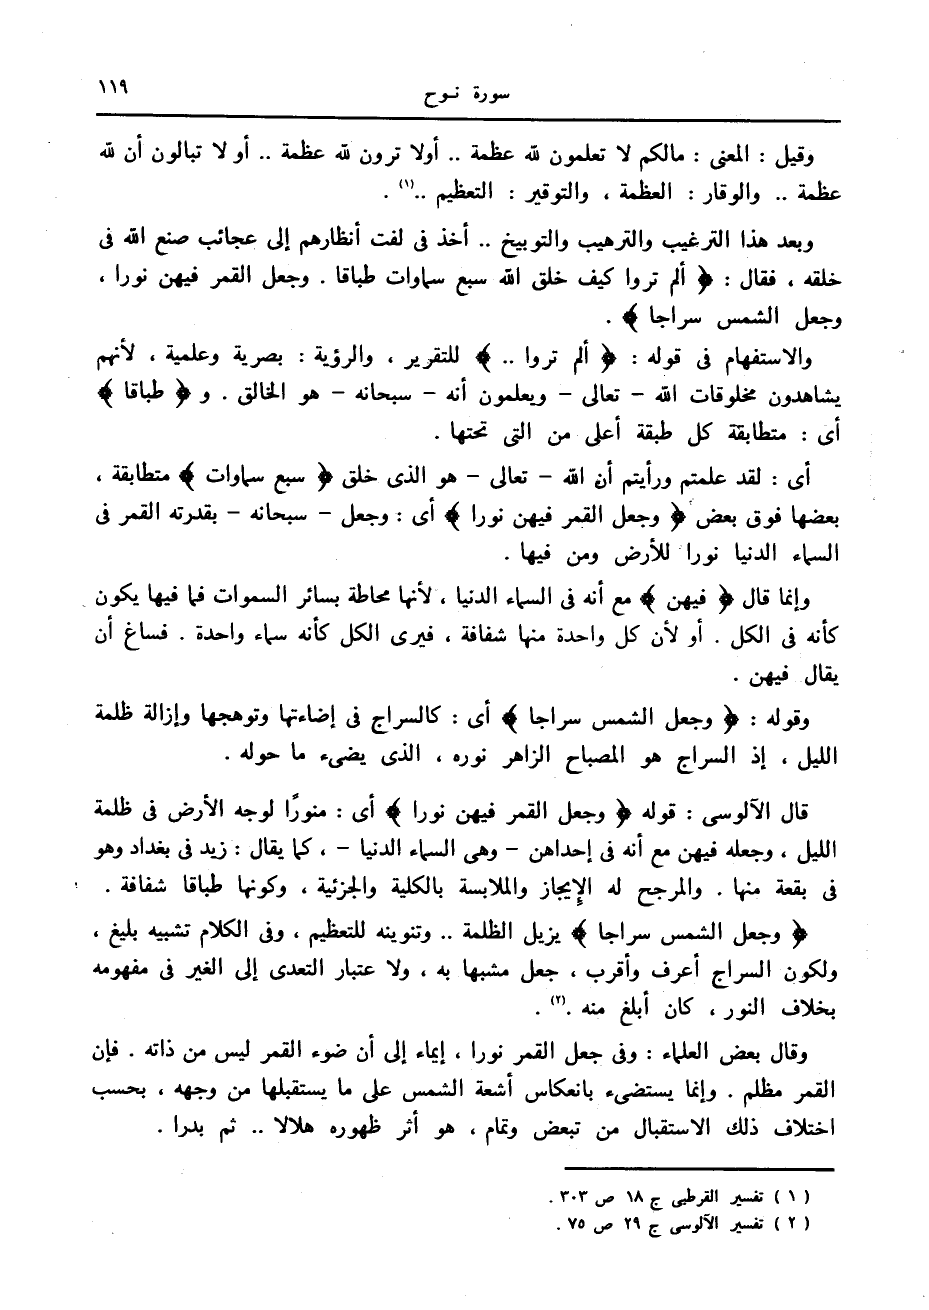 سورة نـوح
١١٩
وقيل : المعنى : مالكم لا تعلمون لله عظمة .. أولا ترون لله عظمة .. أو لا تبالون أن لله
عظمة .. والوقار : العظمة ، والتوقير : التعظيم ..(١) .
وبعد هذا الترغيب والترهيب والتوبيخ .. أخذ فى لفت أنظارهم إلى عجائب صنع الله فى
خلقه ، فقال : ﴿ ألم تروا كيف خلق الله سبع سماوات طباقا . وجعل القمر فيهن نورا ،
وجعل الشمس سراجا ﴾ .
والاستفهام فى قوله : ﴿ ألم تروا .. ﴾ للتقرير ، والرؤية : بصرية وعلمية ، لأنهم
يشاهدون مخلوقات الله - تعالى - ويعلمون أنه - سبحانه - هو الخالق . و ﴿ طباقا ﴾
أى : متطابقة كل طبقة أعلى من التى تحتها .
أى : لقد علمتم ورأيتم أن الله - تعالى - هو الذى خلق ﴿ سبع سماوات ﴾ متطابقة ،
بعضها فوق بعض ﴿ وجعل القمر فيهن نورا ﴾ أى : وجعل - سبحانه - بقدرته القمر فى
السماء الدنيا نورا للأرض ومن فيها .
وإنما قال ﴿ فيهن ﴾ مع أنه فى السماء الدنيا ، لأنها محاطة بسائر السموات فما فيها يكون
كأنه فى الكل . أو لأن كل واحدة منها شفافة ، فيرى الكل كأنه سماء واحدة . فساغ أن
يقال فيهن .
وقوله : ﴿ وجعل الشمس سراجا ﴾ أى : كالسراج فى إضاءتها وتوهجها وإزالة ظلمة
الليل ، إذ السراج هو المصباح الزاهر نوره ، الذى يضىء ما حوله .
قال الآلوسى : قوله ﴿ وجعل القمر فيهن نورا ﴾ أى : منورًا لوجه الأرض فى ظلمة
الليل ، وجعله فيهن مع أنه فى إحداهن - وهى السماء الدنيا - ، كما يقال : زيد فى بغداد وهو
فى بقعة منها . والمرجح له الإيجاز والملابسة بالكلية والجزئية ، وكونها طباقا شفافة .
﴿ وجعل الشمس سراجا ﴾ يزيل الظلمة .. وتنوينه للتعظيم ، وفى الكلام تشبيه بليغ ،
ولكون السراج أعرف وأقرب ، جعل مشبها به ، ولا عتبار التعدى إلى الغير فى مفهومه
بخلاف النور ، كان أبلغ منه .(٢) .
وقال بعض العلماء : وفى جعل القمر نورا ، إيماء إلى أن ضوء القمر ليس من ذاته . فإن
القمر مظلم . وإنما يستضىء بانعكاس أشعة الشمس على ما يستقبلها من وجهه ، بحسب
اختلاف ذلك الاستقبال من تبعض وتمام ، هو أثر ظهوره هلالا .. ثم بدرا .
( ١ ) تفسير القرطبى ج ١٨ ص ٣٠٣ .
( ٢ ) تفسير الآلوسى ج ٢٩ ص ٧٥ .